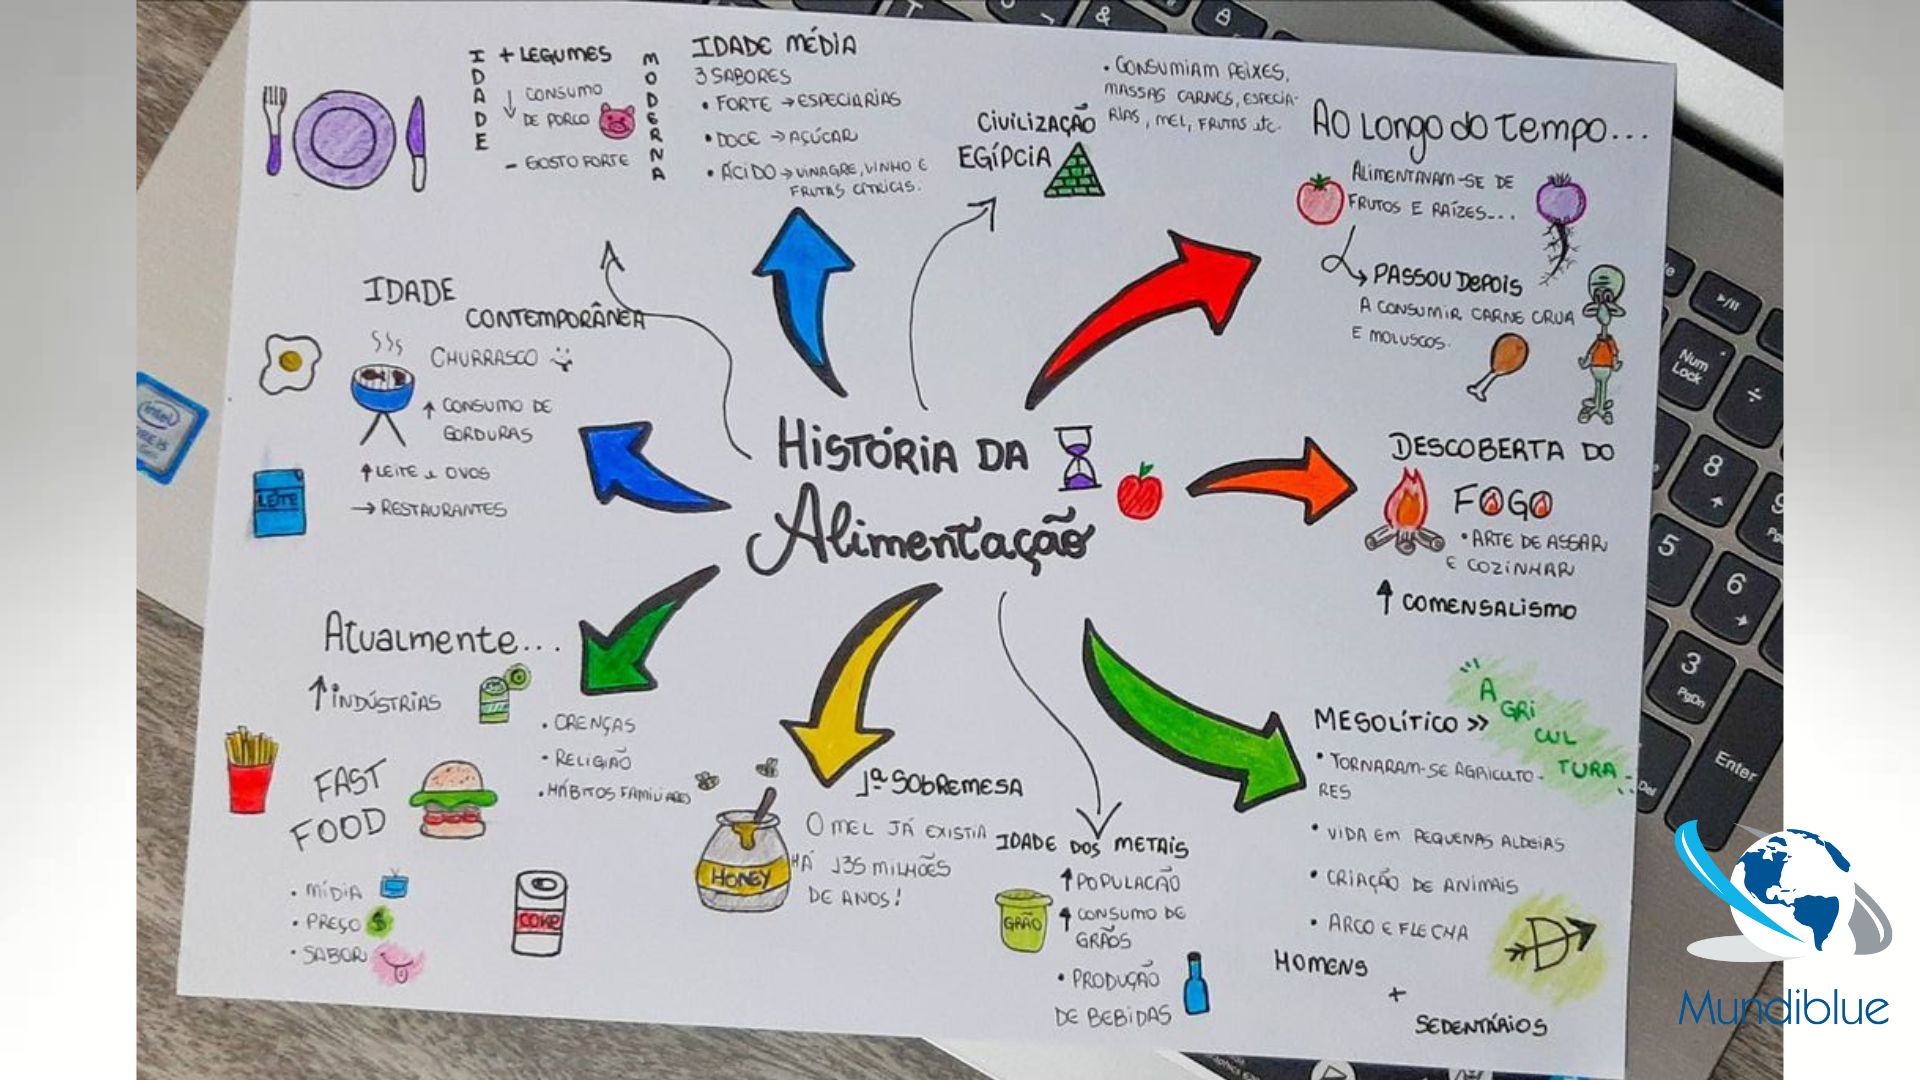 HISTÓRIA DA
Alimentação
AO LONGO DO TEMPO...
ALIMENTAVAM-SE DE
FRUTOS E RAÍZES...
PASSOU DEPOIS
A CONSUMIR CARNE CRUA
E MOLUSCOS.
DESCOBERTA DO
FOGO
• ARTE DE ASSAR
E COZINHAR
↑ COMENSALISMO
MESOLÍTICO >>
AGRICULTURA
• TORNARAM-SE AGRICULTO-
RES
• VIDA EM PEQUENAS ALDEIAS
• CRIAÇÃO DE ANIMAIS
• ARCO E FLECHA
HOMENS
+
SEDENTÁRIOS
IDADE DOS METAIS
↑ POPULACÃO
↑ CONSUMO DE
GRÃOS
• PRODUÇÃO
DE BEBIDAS
GRÃO
1ª SOBREMESA
O MEL JÁ EXISTIA
HÁ 135 MILHÕES
DE ANOS!
HONEY
Atualmente...
↑ INDÚSTRIAS
• CRENÇAS
• RELIGIÃO
• HÁBITOS FAMILIARES
FAST
FOOD
• MÍDIA
• PREÇO $
• SABOR
COKE
IDADE
CONTEMPORÂNEA
CHURRASCO
↑ CONSUMO DE
GORDURAS
↑ LEITE e OVOS
→ RESTAURANTES
LEITE
IDADE
MODERNA
+ LEGUMES
↓ CONSUMO
DE PORCO
- GOSTO FORTE
IDADE MÉDIA
3 SABORES
• FORTE → ESPECIARIAS
• DOCE → AÇÚCAR
• ÁCIDO → VINAGRE, VINHO E
FRUTAS CÍTRICAS.
CIVILIZAÇÃO
EGÍPCIA
• CONSUMIAM PEIXES,
MASSAS CARNES, ESPECIA-
RIAS, MEL, FRUTAS etc.
intel
Num
Lock
8
5
6
3
PgDn
Enter
Del
&
Mundiblue